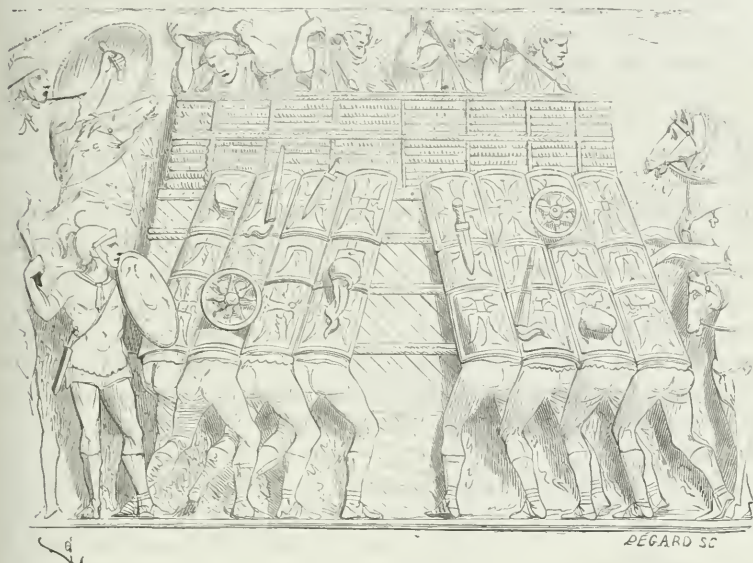 PÉGARD SC